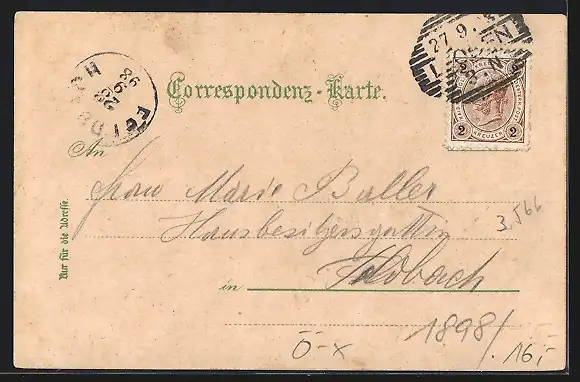 27 9
Correspondenz-Karte.
FELDBACH
28
9
98
2 KREUZER 2
An
Frau Marie Buller
Hausbesitzersgattin
3.566
Nur für die Adresse.
in Feldbach
1898/
Ö-x
.16,-